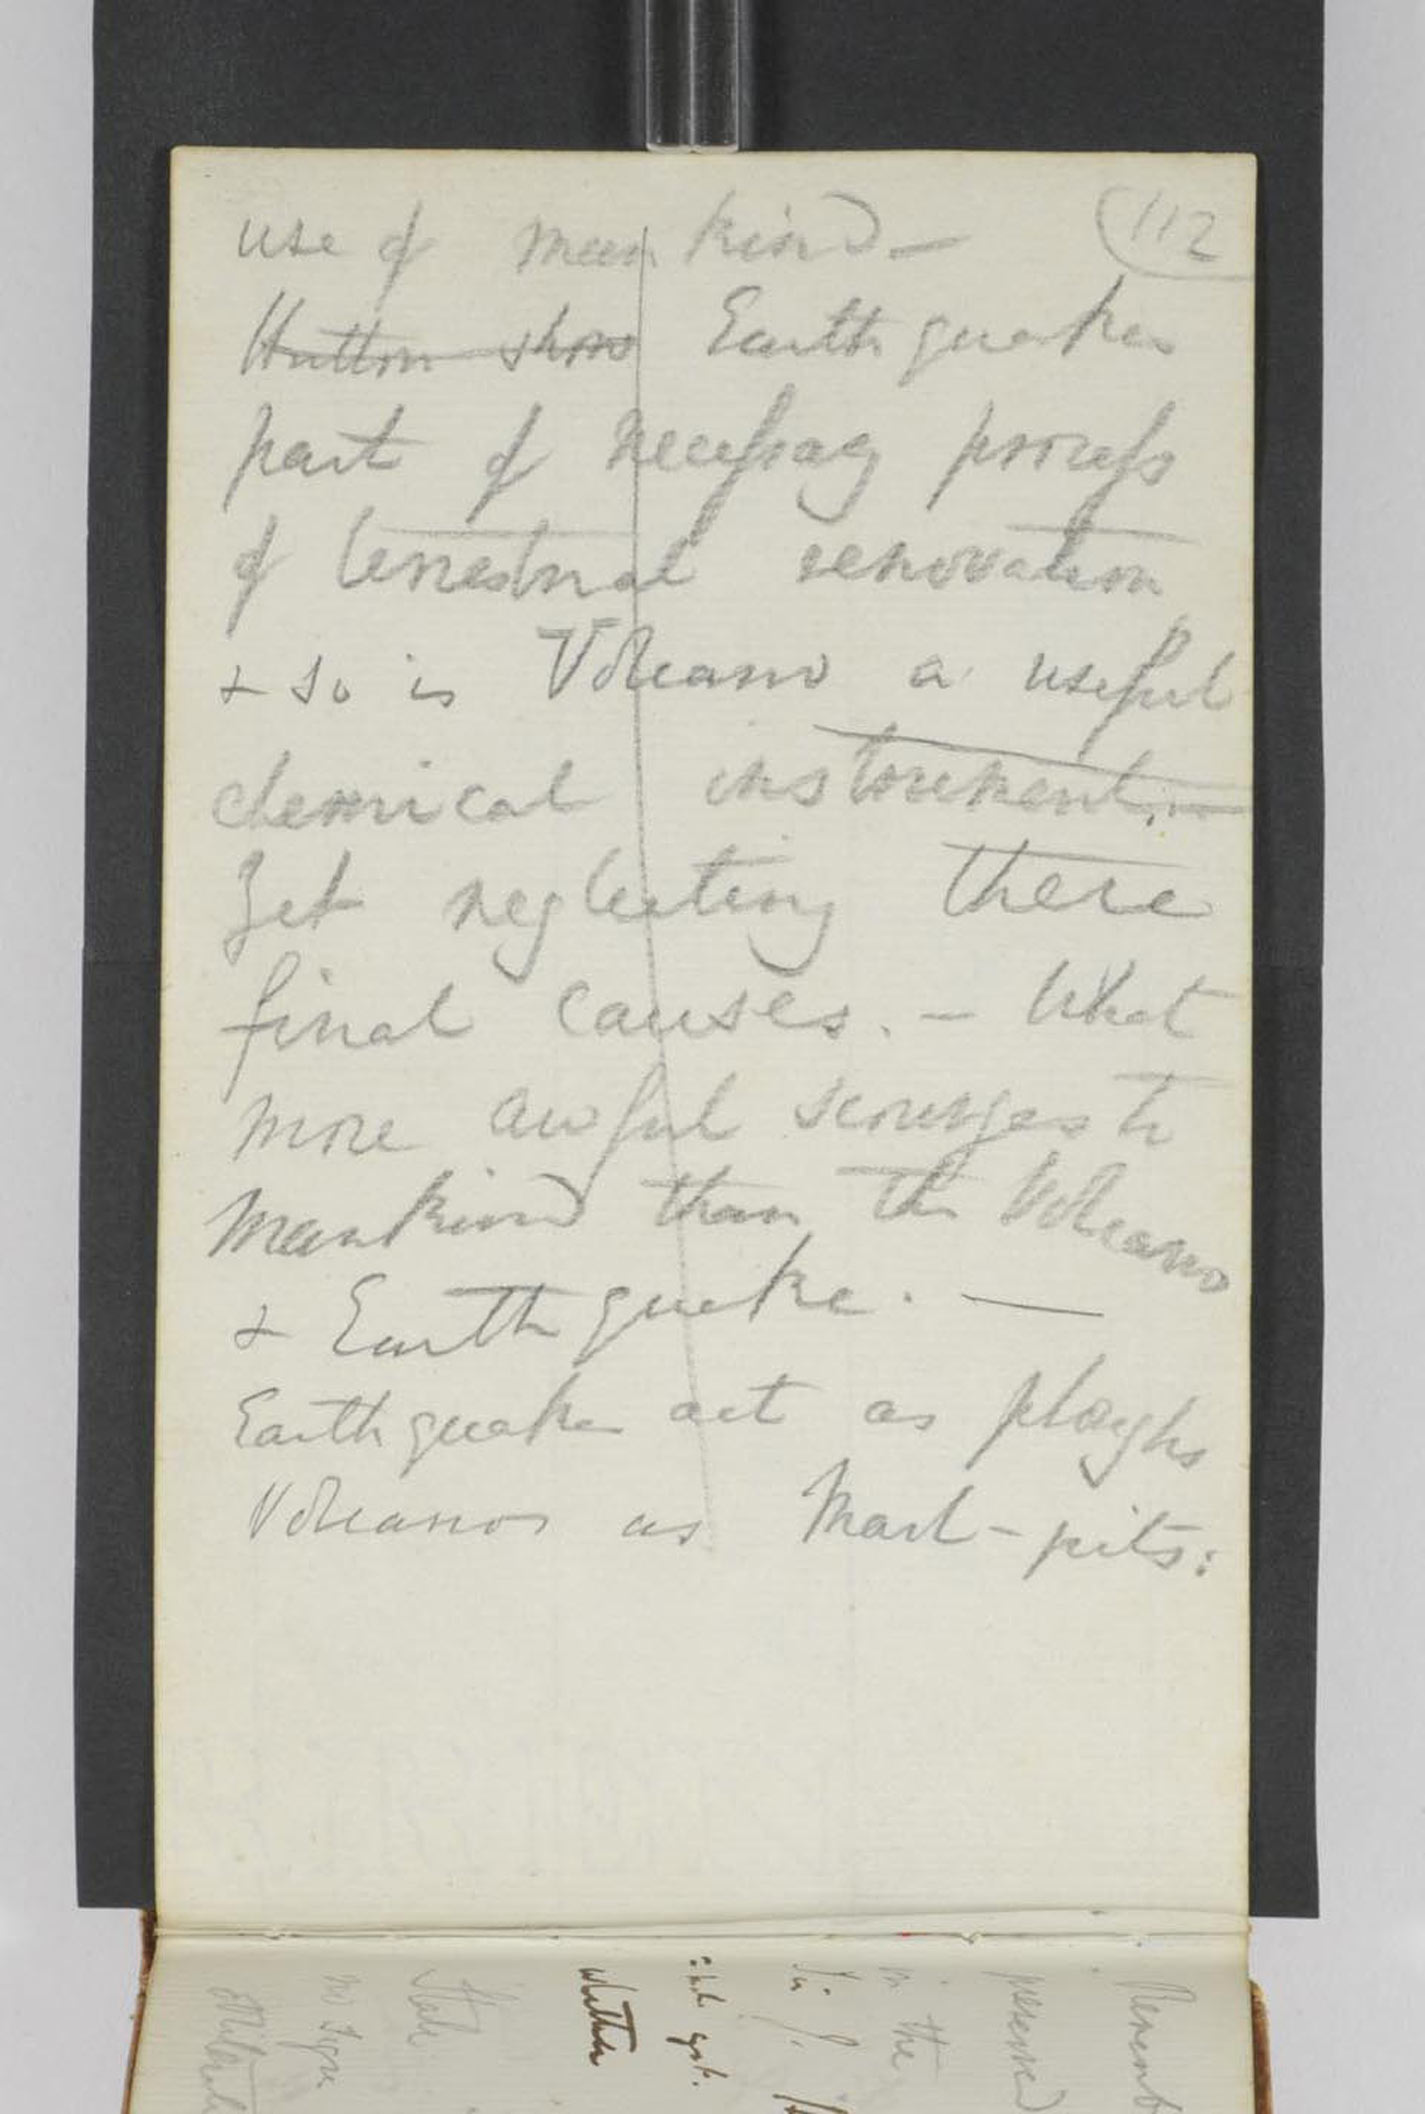 112
use of mankind —
Hutton shows Earthquakes
part of necessary process
of terrestrial renovation
& so is Volcano a useful
chemical instrument. —
Yet neglecting these
final causes. — What
more awful scourges to
mankind than the Volcano
& Earthquake. —
Earthquakes act as ploughs
Volcanos as Marl-pits:
preserved
in the
Sir J.
whether
State
no sign